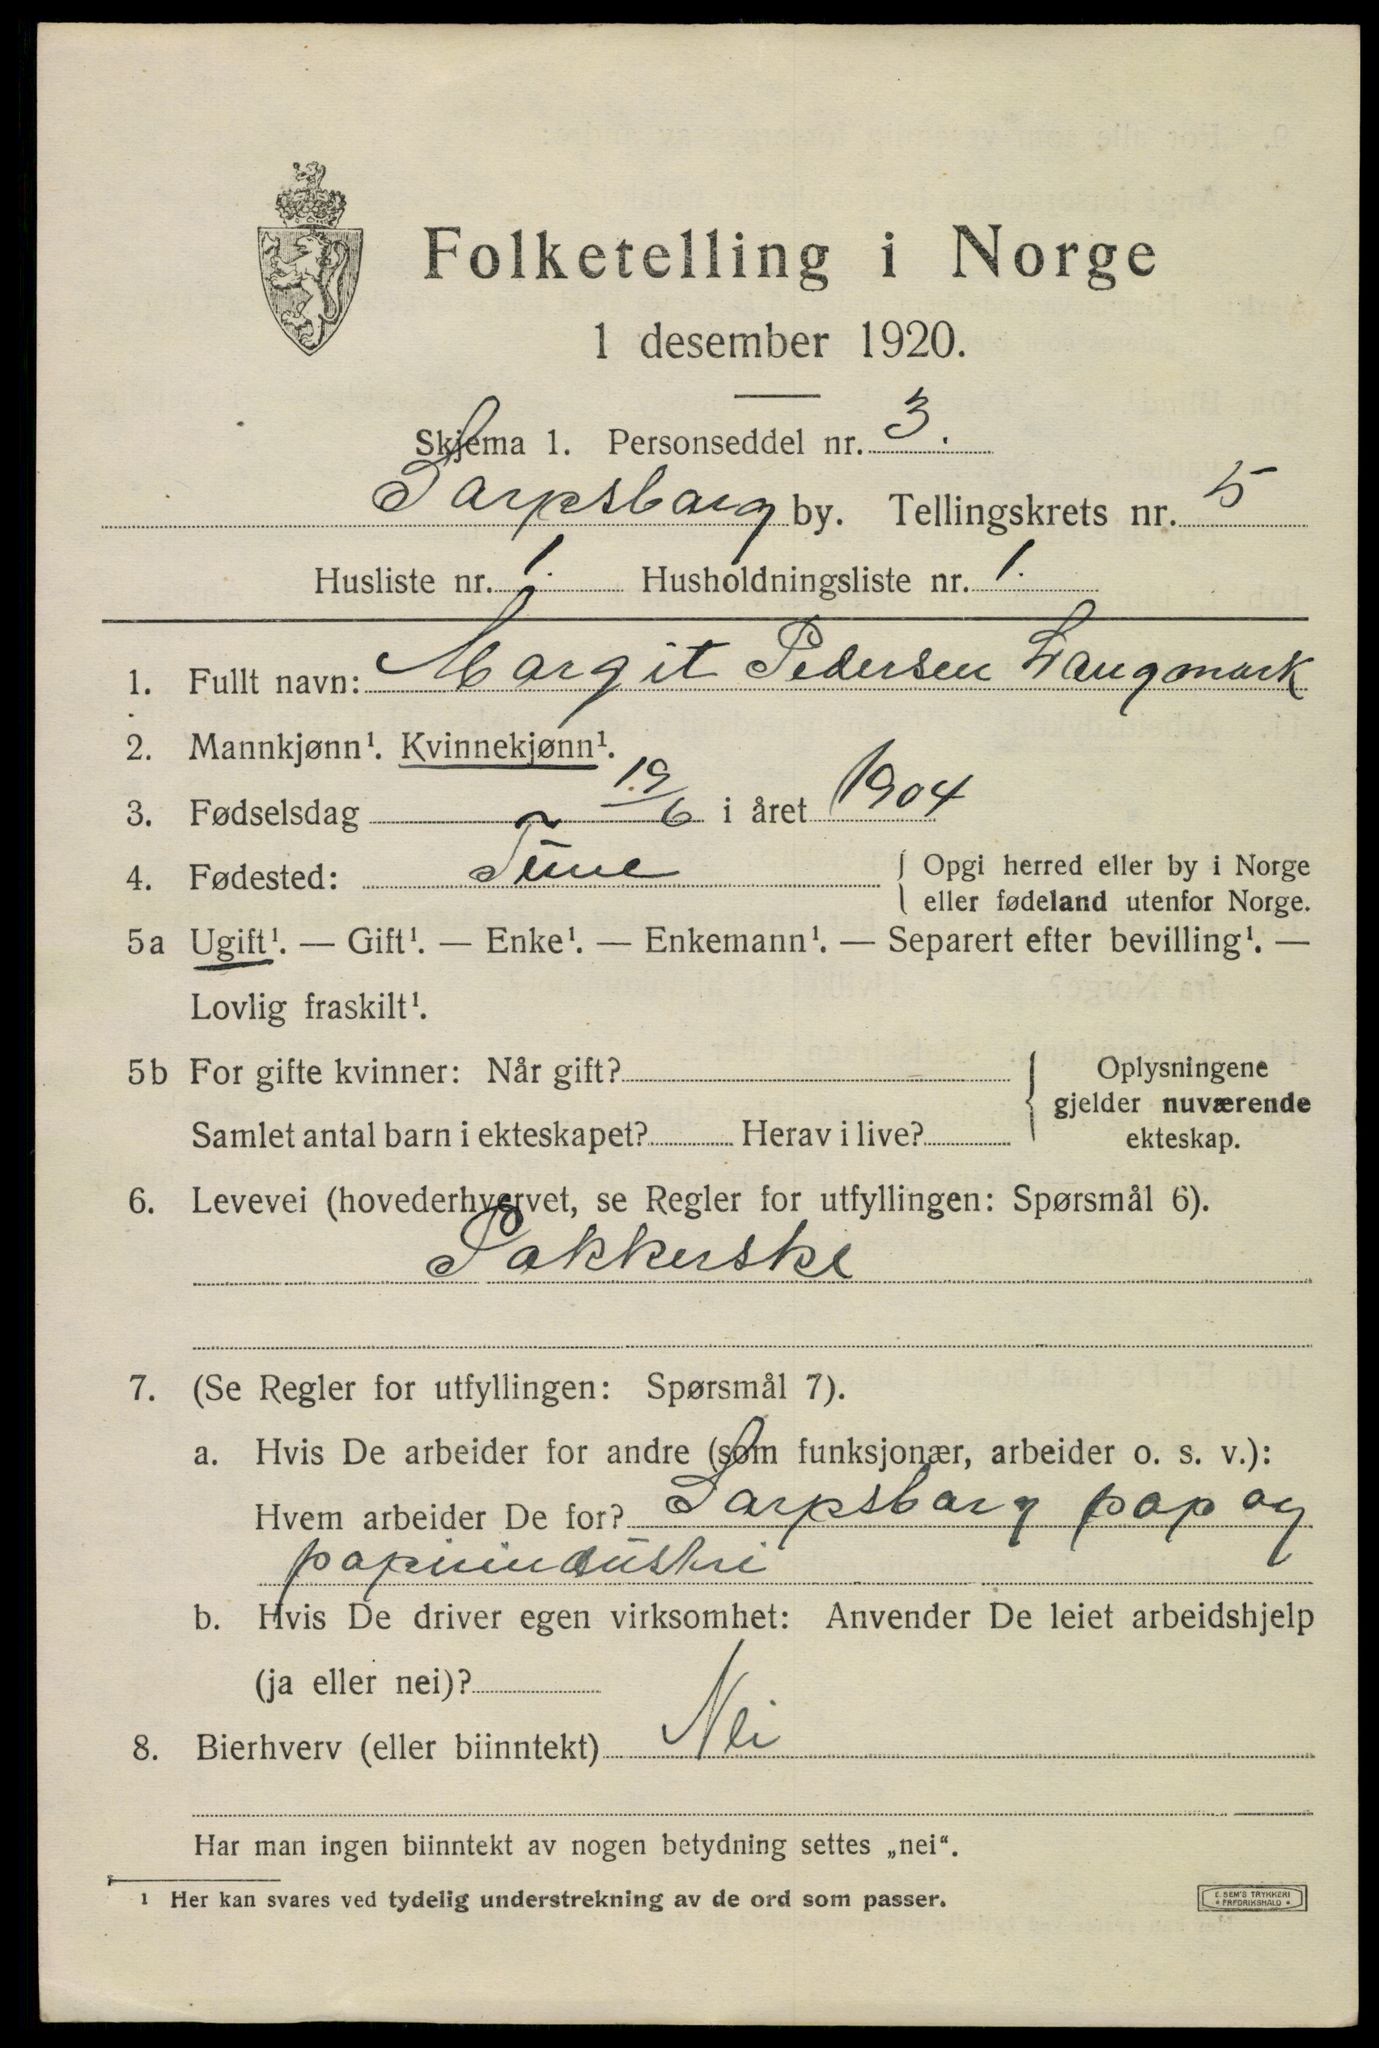 Folketelling i Norge
1 desember 1920.
Skjema 1. Personseddel nr. 3.
Sarpsborg by. Tellingskrets nr. 5
Husliste nr. 1. Husholdningsliste nr. 1.
1. Fullt navn: Margit Pedersen Langmark
2. Mannkjønn¹. Kvinnekjønn¹.
3. Fødselsdag 19/6 i året 1904
4. Fødested: Tune { Opgi herred eller by i Norge
eller fødeland utenfor Norge.
5a Ugift¹. — Gift¹. — Enke¹. — Enkemann¹. — Separert efter bevilling¹. —
Lovlig fraskilt¹.
5b For gifte kvinner: Når gift?
Samlet antal barn i ekteskapet? Herav i live?
{ Oplysningene
gjelder nuværende
ekteskap.
6. Levevei (hovederhvervet, se Regler for utfyllingen: Spørsmål 6).
Pakkerske
7. (Se Regler for utfyllingen: Spørsmål 7).
a. Hvis De arbeider for andre (som funksjonær, arbeider o. s. v.):
Hvem arbeider De for? Sarpsborg pap og
papirindustri
b. Hvis De driver egen virksomhet: Anvender De leiet arbeidshjelp
(ja eller nei)?
8. Bierhverv (eller biinntekt) Nei
Har man ingen biinntekt av nogen betydning settes „nei“.
¹ Her kan svares ved tydelig understrekning av de ord som passer.
E. SEM'S TRYKKERI
* FREDRIKSHALD *